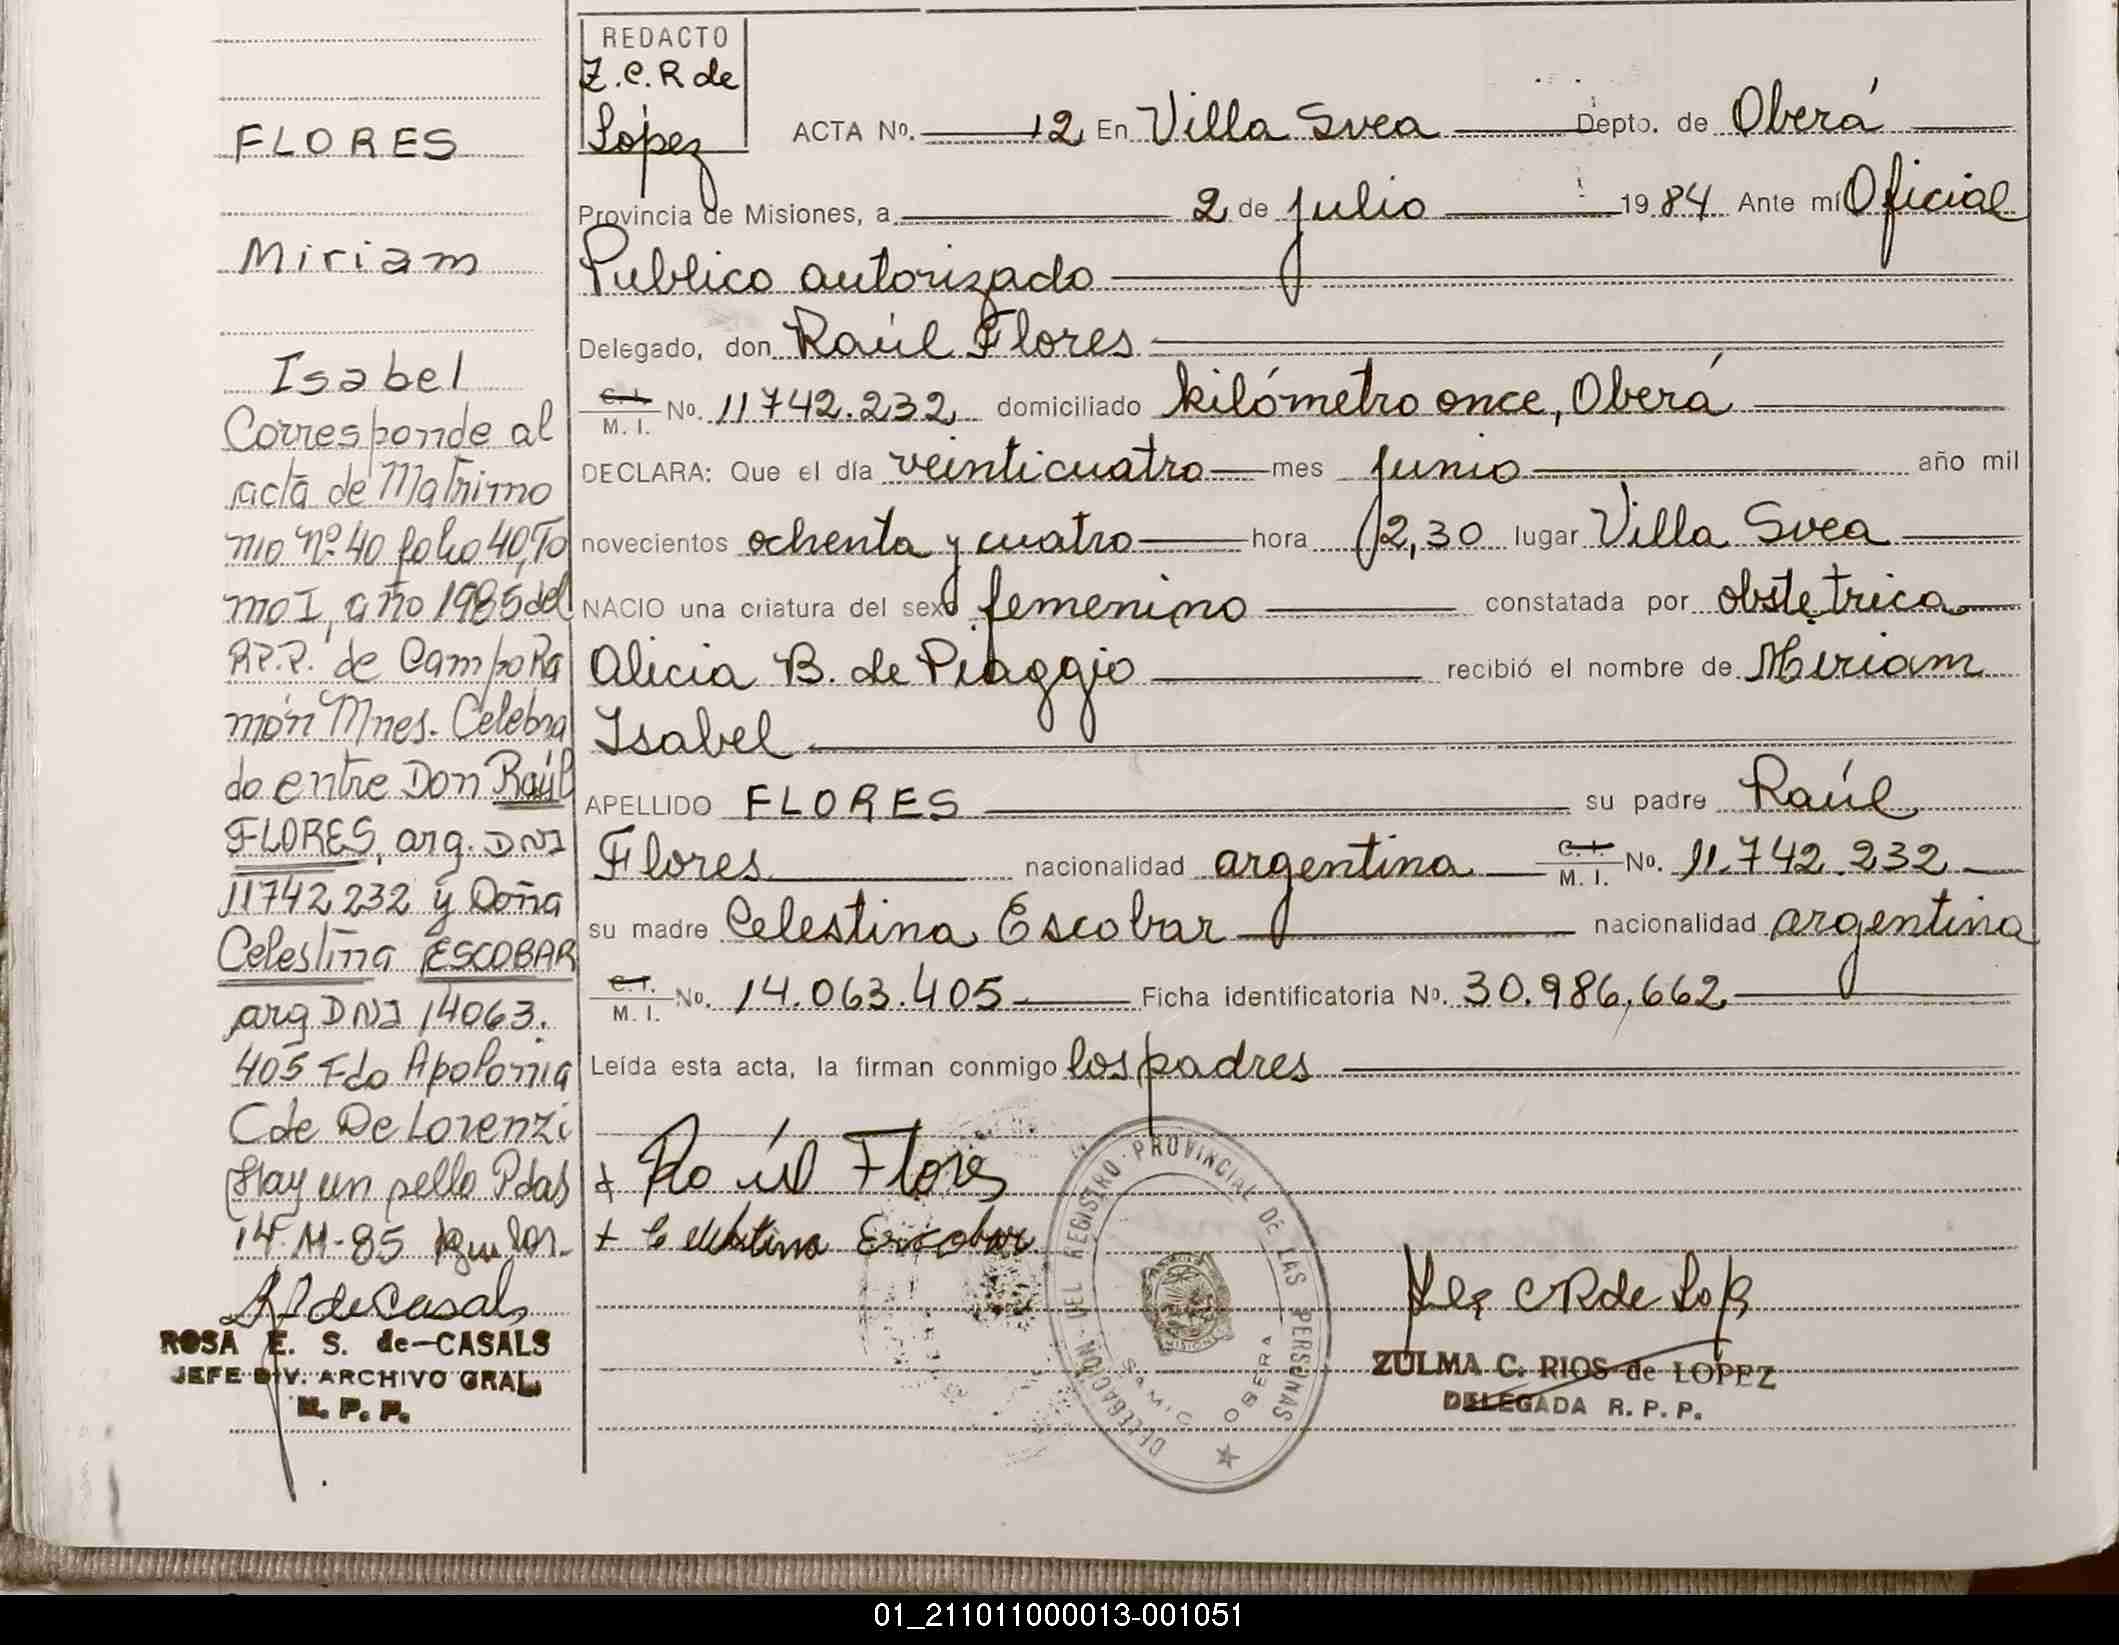 FLORES
Miriam
Isabel
Corresponde al
acta de Matrimo
nio Nº 40 folio 40, To
mo I, año 1985 del
R.P.P. de Campo Ra
món Mnes. Celebra
do entre Don Raúl
FLORES, arg. DNI
11742232 y Doña
Celestina ESCOBAR
arg DNI 14063.
405 Fdo Apolonia
C de De Lorenzi
Hay un sello Pdas
ROSA E. S. de-CASALS
JEFE DIV. ARCHIVO GRAL.
R. P. P.
REDACTO
Z.C.R de
López
ACTA No. 12 En Villa Svea Depto. de Oberá
Provincia de Misiones, a 2 de julio 1984 Ante mí Oficial
Publico autorizado
Delegado, don Raúl Flores
C. I. M. I. No. 11742.232 domiciliado kilómetro once, Oberá
DECLARA: Que el día veinticuatro mes junio año mil
novecientos ochenta y cuatro hora 12,30 lugar Villa Svea
NACIO una criatura del sexo femenino constatada por obstetrica
Alicia B. de Piaggio recibió el nombre de Miriam
Isabel
APELLIDO FLORES su padre Raúl
Flores nacionalidad argentina C. I. M. I. No. 11.742.232
su madre Celestina Escobar nacionalidad argentina
C. I. M. I. No. 14.063.405 Ficha identificatoria No. 30.986,662
Leída esta acta, la firman conmigo los padres
Raúl Flores
Celestina Escobar
DELEGACION DEL REGISTRO PROVINCIAL DE LAS PERSONAS
OBERA
ZULMA C. RIOS de LOPEZ
DELEGADA R. P. P.
01_211011000013-001051